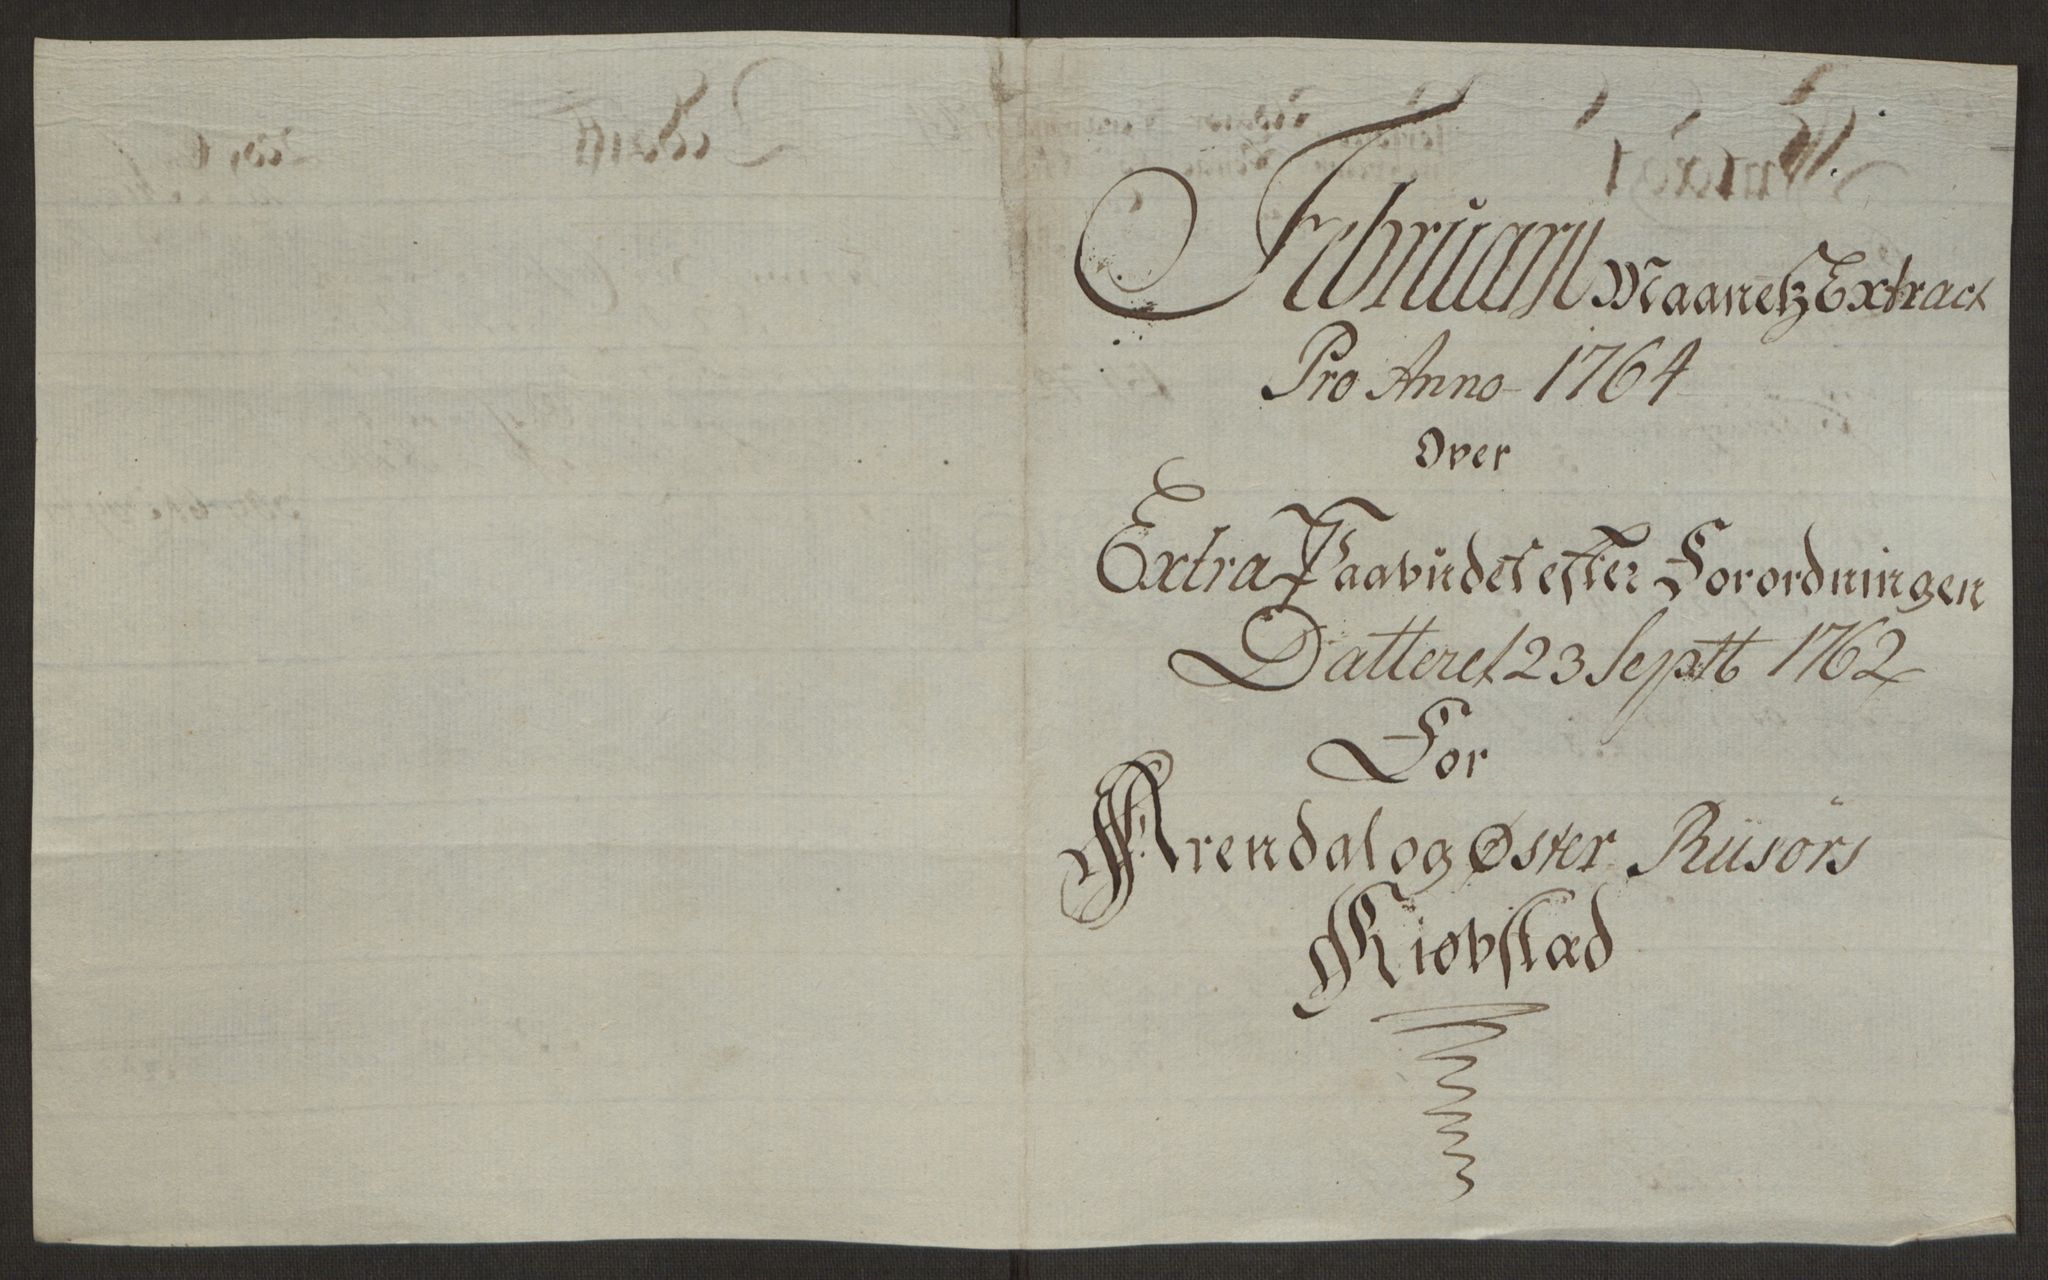 Februarii Maanetz Extract
Pro Anno 1764
Over
Extra Paabudet efter Forordningen
Datteret 23 Septb 1762
For
Arendal og Øster Riisørs
Kiøbstæd